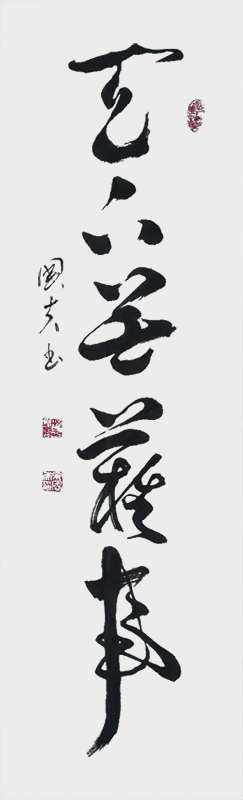 天下無難事
國書